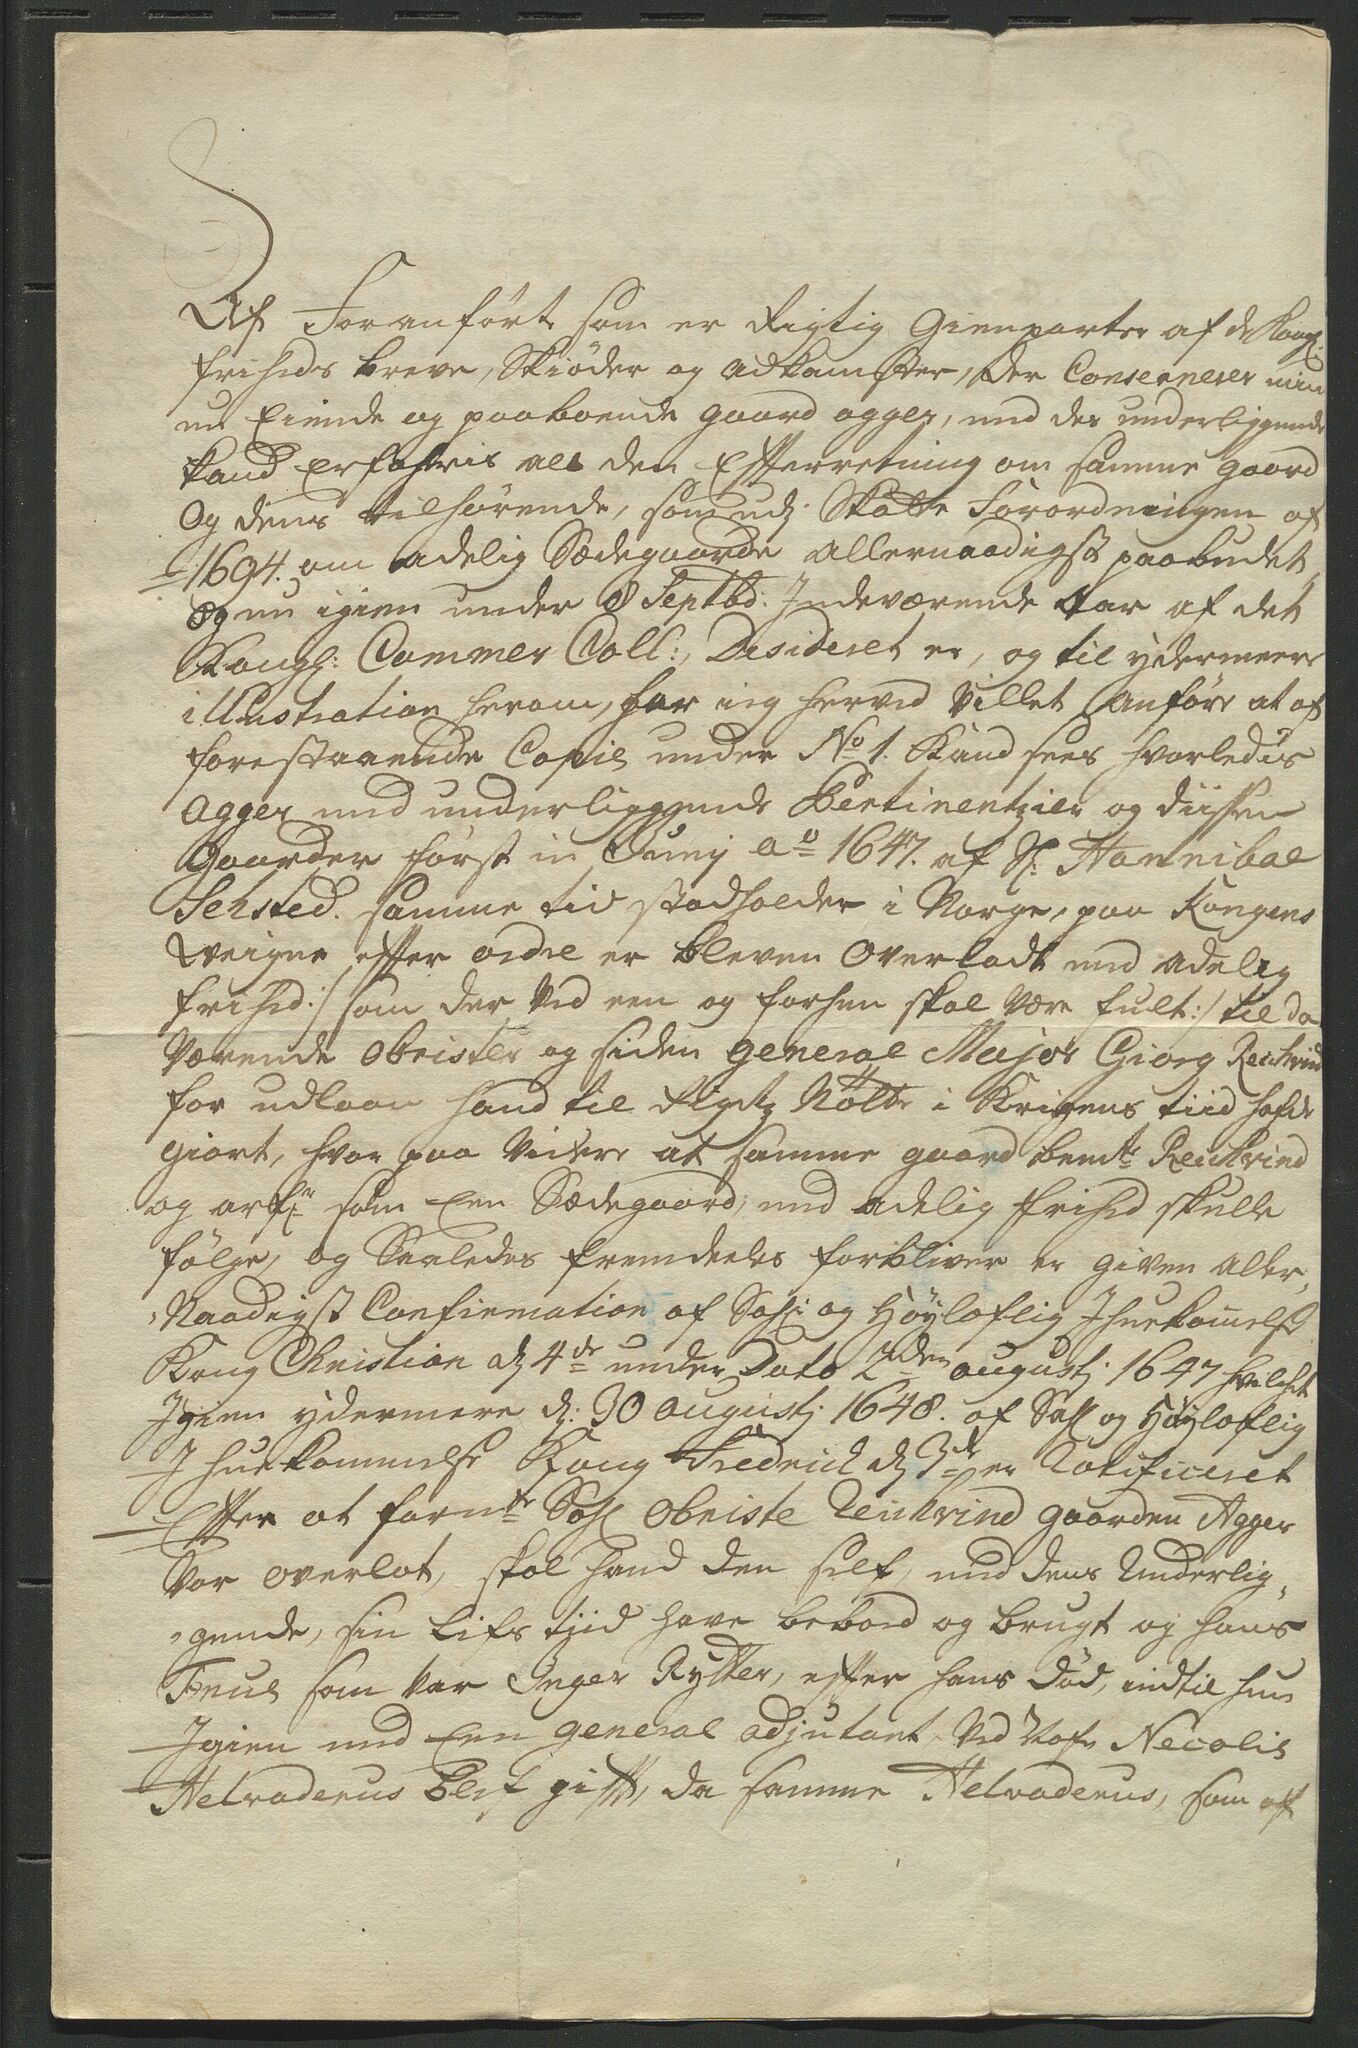 Af Foranførte som er Rigtig Gienparter af de Kongl:
friheds breve, Skiøder og adkomster, der Concernerer min
nu Eiende og paaboende gaard agger, med des underliggende
kand erfahris all den Efterretning om samme gaard
Og dens tilhørende, som udj Skatte Forordningen af
1694. om adelig Sædegaarde allernaadigst paabudet,
Og nu igien under 8 Septbd: Indeværende aar af det
Kongl: Cammer Coll:, Desideret er, og til ydermeere
illustration herom, har ieg herved villet anføre at af
forestaaende Copie under No 1. Kand sees hvorledis
Agger med underliggende Pertinentzier og diissen
Gaarder først in Junij ao 1647. af Sl: Hannibal
Sehsted. samme tid stadholder i Norge, paa Kongens
Weigne efter ordre er bleven Overladt med adelig
frihed :/ som der ved een og forhen skal være fult :/ til da
Værende Obrister og siden General Major Giorg Reichvind
for udlaan hand til Rigetz Nøtte i Krigens tiid hafde
giort, hvor paa Videre at samme gaard bemte Reichvind
og arfr som Een Sædegaard, med adelig frihed skulle
følge, og Saaledes fremdeeles forbliver er given aller„
„Naadigst Confirmation af Sahl: og Høyloflig Ihuekommelse
Kong Christian dj 4de under Dato 2den augustj 1647 hvilchet
Igien ydermere dj: 30 augustj 1648. af Sahl og Høyloflig
Ihuekommelse Kong Fredrich dj 3de er Ratificeret
Efter at formte Sahl Obriste Reichvind gaarden Agger
Var overlat, skal hand den self, med dens Underlig„
„gende, sin Lifs tjid have beboed og brugt og hans
Frue som var Inger Rytter, efter hans død, indtil hun
Igien med Een General adjutant ved Nafn Necolie
Helvaderus blef gift, da samme Helvaderus, som af